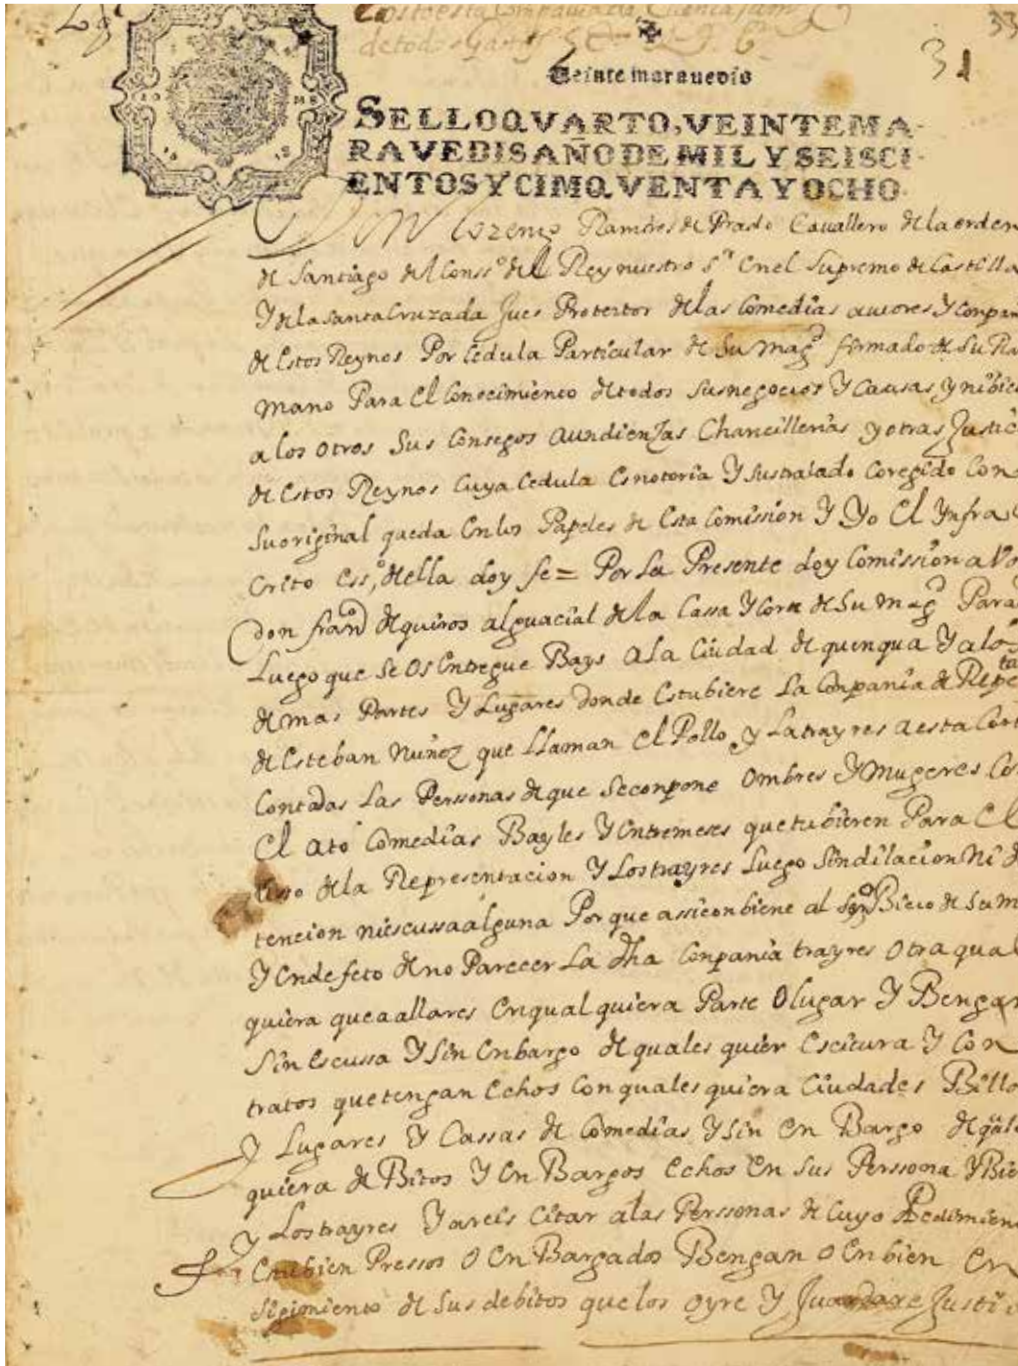 31
Veinte marauedis
SELLO QVARTO, VEINTE MA-
RAVEDIS AÑO DE MIL Y SEISCI-
ENTOS Y CIMQVENTA Y OCHO.
Don lorenço Ramires de Prado Cauallero de la orden
de Santiago del Conss.º del Rey nuestro s.r en el Supremo de Castilla
Y de la santa Cruzada Jues Protector de las Comedias autores Y Conpan
de Estos Reynos Por Cedula Particular de Su mag.d firmado de Su Ra
mano Para El Conocimiento de todos Sus negocios Y Causas Ynibi
a los otros Sus Consegos Audienças Chancillerias y otras Justic
de Estos Reynos Cuya Cedula Es notoria Y su traslado Coregido Con
Su original queda En los Papeles de Esta Comission Y Yo El Ynfra
Crito Ess.º della doy fe = Por La Presente doy Comission a Vo
don fran.co de quiros alguacial de la Cassa Y Corte de Su mag.d Para
Luego que Se Os Entregue Bays a La Ciudad de quenqua Y a los
demas Partes Y Lugares donde Estubiere La Conpania de Repe
de Esteban nuñez que Llaman El Pollo y La trayres a esta Cort
Contadas Las Perssonas de que Se conpone Ombres Y Mugeres Co
El ato Comedias Bayles Y Entremeses que tubieren Para El
Usso de la Representacion Y Los trayres Luego Sin dilacion Ni de
tencion ni escussa alguna Por que assi conbiene al Serbicio de Su M
Y En defeto de no Parecer La dha Conpania trayres Otra qual
quiera que a allares En qual quiera Parte O lugar Y Bengan
Sin Escussa Y Sin Enbargo de quales quier Escitura Y Con
tratos que tengan Echos Con quales quiera Ciudades Billa
y Lugares Y Cassas de Comedias Y Sin En Bargo de quale
quiera de Bitos Y En Bargos Echos En Sus Perssona Y Bie
y Los trayres Y areis Citar a las Perssonas de Cuyo Pedimien
Estubien Pressos O En Bargados Bengan O Enbien En
Sigimiento de Sus debitos que los Oyre Y Guardare Justi